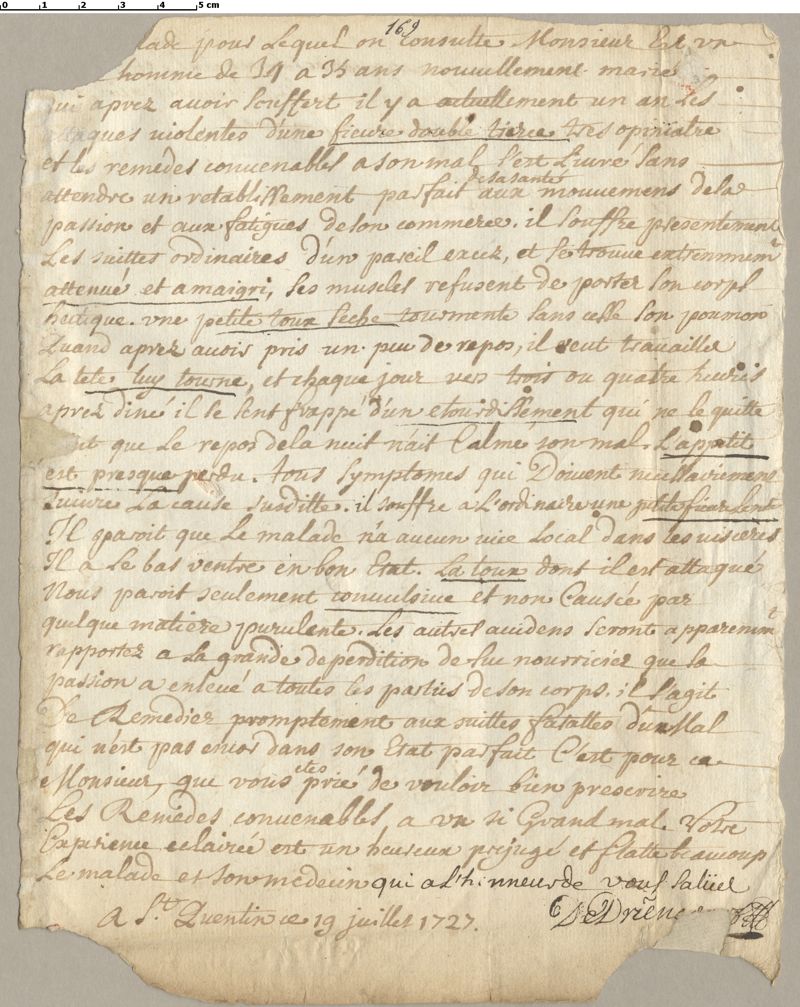 0 1 2 3 4 5 cm
169
lade pour Lequel on consulte Monsieur Est vn
homme de 34 a 35 ans nouuellement marié
qui aprez auoir souffert il y a actuellement un an Les
attaques violentes d'une fieure double tierce tres opiniatre
et les remedes conuenables a son mal s'est Liuré sans
attendre un retablissement parfait de sa santé aux mouuemens de la
passion et aux fatigues de son commerce. il souffre presentement
Les suittes ordinaires d'un pareil excez, et se trouue extremement
attenué et amaigri, ses muscles refusent de porter son corps
hectique. vne petite toux seche tourmente sans cesse son poumon
Quand aprez auoir pris un peu de repos, il veut trauailler
La tete luy tourne, et chaque jour vers trois ou quatre heures
aprez diné il se sent frappé d'un etourdissement qui ne le quitte
point que Le repos de la nuit n'ait Calmé son mal. L'apetit
est presque perdu. tous symptomes qui Doiuent necessairement
suiure La cause susditte. il souffre a L'ordinaire une petite fieure Lente
Il paroit que Le malade n'a aucun vice Local dans les visceres
Il a Le bas ventre en bon Etat. La toux dont il est attaqué
Nous paroit seulement conuulsiue et non Causée par
quelque matiere purulente. Les autres accidens seront apparemmt
rapportez a La grande deperdition de suc nourricier que la
passion a enleué a toutes les parties de son corps. il s'agit
De Remedier promptement aux suittes fatalles d'un Mal
qui n'est pas encor dans son Etat parfait C'est pour ce
Monsieur, que vous etes prié de vouloir bien prescrire
Les Remedes conuenables a vn si Grand mal. Votre
Experience eclairée est un heureux prejugé et flatte beaucoup
Le malade et son medecin qui a L'hinneur de vous salüer
A St. Quentin ce 19 juillet 1727.